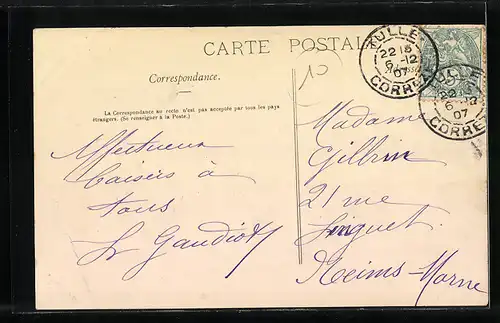 CARTE POSTALE
Correspondance.
La Correspondance au recto n'est pas acceptée par tous les pays
étrangers. (Se renseigner à la Poste.)
TULLE
22 15
6 -12
07
CORRÈZE
22 15
6 -12
07
CORRÈZE
10
Affectueux
baisers à
tous
Madame
21 rue
Reims-Marne